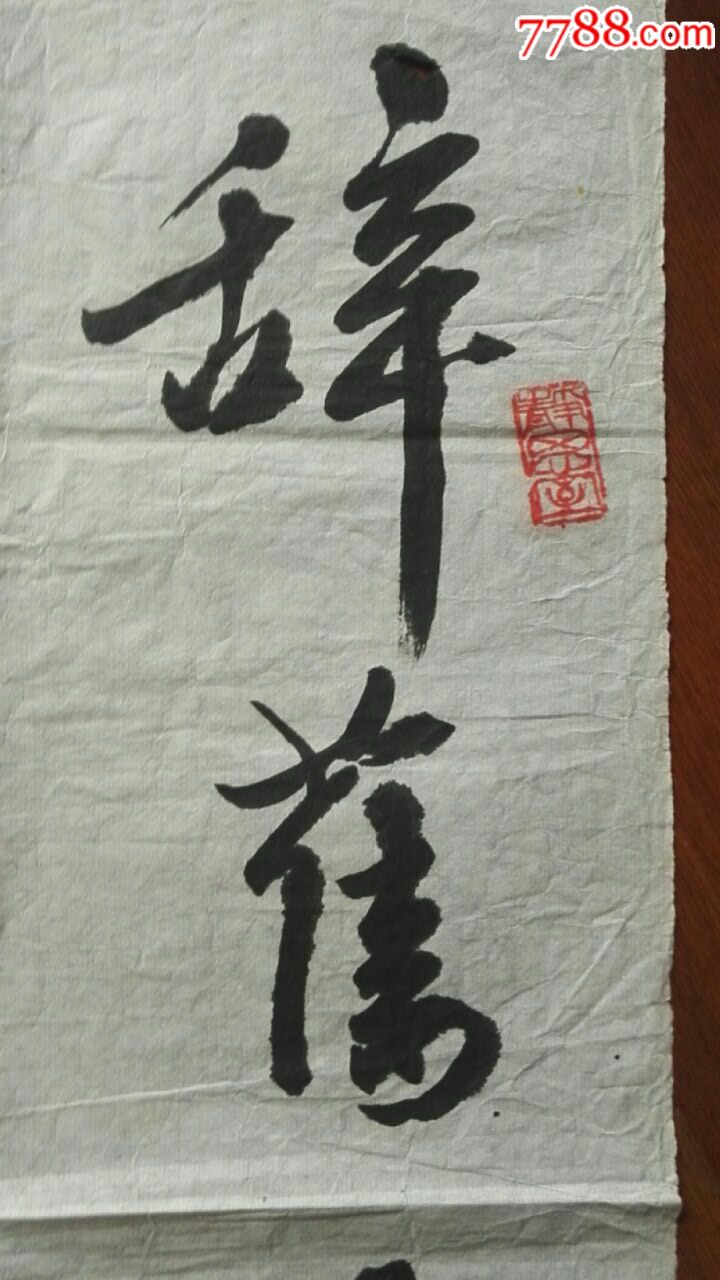 7788.com
辞
舊